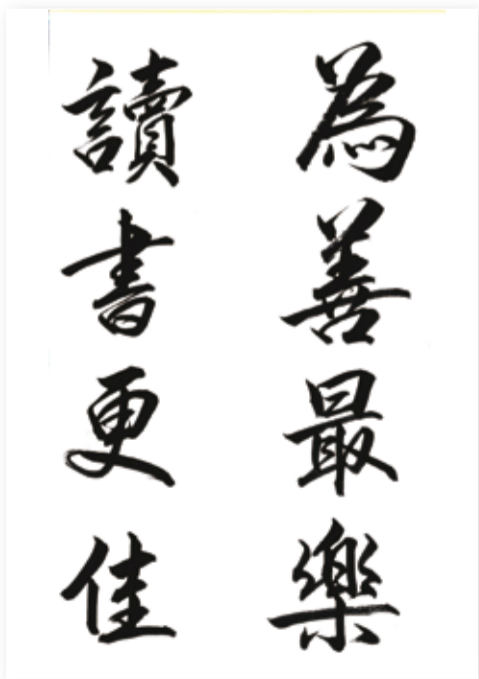 為善最樂
讀書更佳